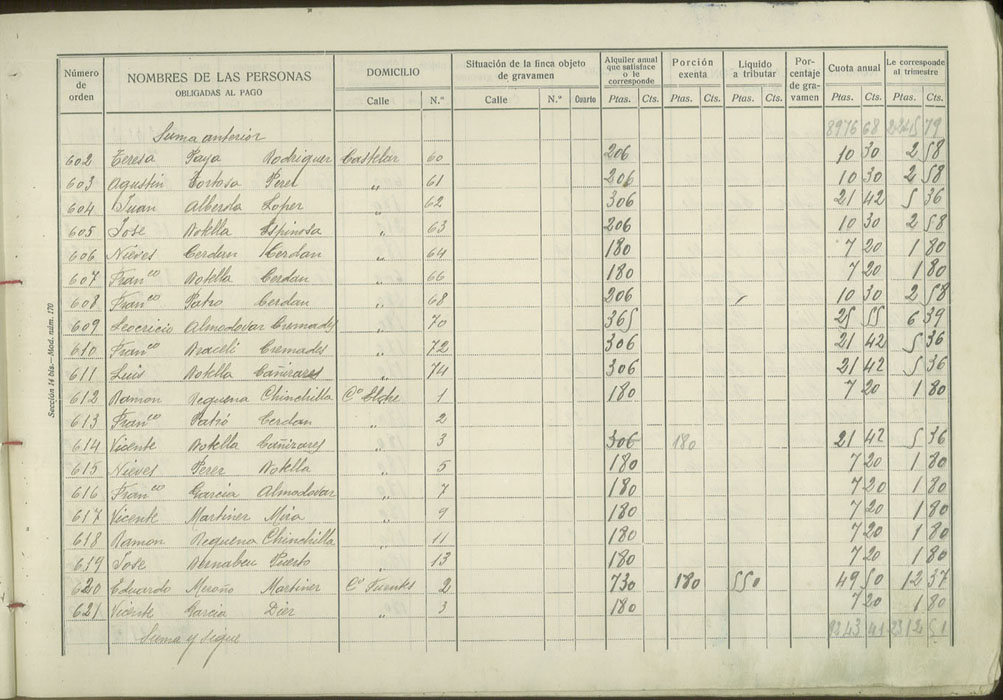 Número de orden | NOMBRES DE LAS PERSONAS OBLIGADAS AL PAGO | DOMICILIO | Situación de la finca objeto de gravamen | Alquiler anual que satisface o le corresponde | Porción exenta | Líquido a tributar | Porcentaje de gravamen | Cuota anual | Le corresponde al trimestre
Calle | N.º | Calle | N.º | Cuarto | Ptas. | Cts. | Ptas. | Cts. | Ptas. | Cts. | Ptas. | Cts. | Ptas. | Cts.
Suma anterior 8976 68 2245 79
602 Teresa Paya Rodriguez Castelar 60 206 10 30 2 58
603 Agustin Tortosa Perez " 61 206 10 30 2 58
604 Juan Alberola Lopez " 62 306 21 42 5 36
605 Jose Botella Espinosa " 63 206 10 30 2 58
606 Nieves Cerdan " 64 180 7 20 1 80
607 Franco Botella Cerdan " 66 180 7 20 1 80
608 Franco Patro Cerdan " 68 206 10 30 2 58
609 Leocricio Almodovar Cremades " 70 365 25 55 6 39
610 Franco Araceli Cremades " 72 306 21 42 5 36
611 Luis Botella Cañizares " 74 306 21 42 5 36
612 Ramon Requena Chinchilla 1 180 7 20 1 80
613 Franco Patró Cerdan " 2
614 Vicente Botella Cañizares " 3 306 180 21 42 5 36
615 Nieves Perez Botella " 5 180 7 20 1 80
616 Franco Garcia Almodovar " 7 180 7 20 1 80
617 Vicente Martinez Mira " 9 180 7 20 1 80
618 Ramon Requena Chinchilla " 11 180 7 20 1 80
619 Jose Bernabeu Puerto " 13 180 7 20 1 80
620 Eduardo Meroño Martinez Co Fuentes 2 730 180 550 49 50 12 37
621 Vicente Garcia Diez " 3 180 7 20 1 80
Suma y sigue 41 51
Sección 14 bis.—Mod. núm. 170